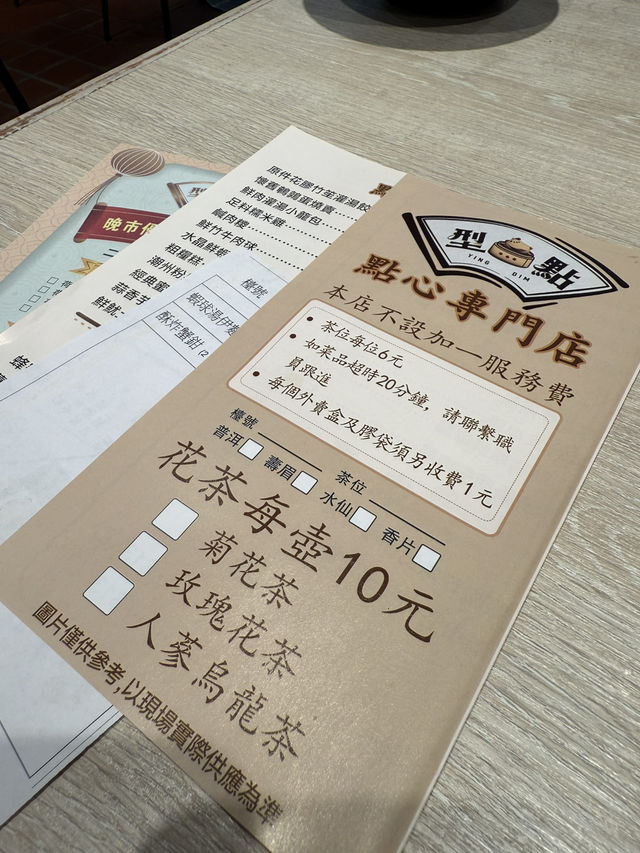 型點
YING DIM
點心專門店
本店不設加一服務費
茶位每位6元
如菜品超時20分鐘，請聯繫職
員跟進
每個外賣盒及膠袋須另收費1元
檯號 茶位
普洱 壽眉 水仙 香片
花茶每壺10元
菊花茶
玫瑰花茶
人蔘烏龍茶
圖片僅供參考,以現場實際供應為準
原件花膠竹笙灌湯餃
懷舊鵪鶉蛋燒賣
鮮肉灌湯小籠包
足料糯米雞
鹹肉糭
鮮竹牛肉球
水晶鮮蝦
潮州粉
經典蜜
蒜香芋
檯號
蝦球湯伊麵
酥炸蟹鉗 (2
晚市
型